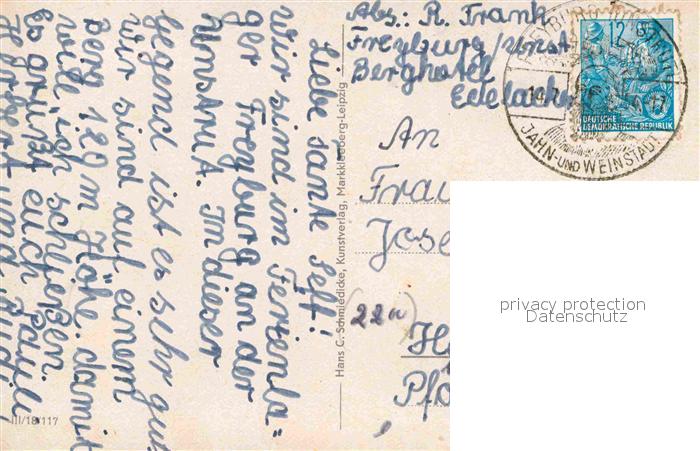 Liebe Tante Sefi!
wir sind im Ferienla=
ger Freyburg an der
Unstrut. In dieser
Gegend ist es sehr gut
wir sind auf einem
Berg 120 m Höhe. damit
will ich schließen
Es grüßt euch
Herbert und
III/18/117
Hans C. Schmiedicke, Kunstverlag, Markkleeberg-Leipzig
Abs.: R. Frank
Freyburg/Unst
Berghotel
Edelacker
12
DEUTSCHE
DEMOKRATISCHE REPUBLIK
JAHN- UND WEINSTADT
An
Frau
Jose
(22a)
privacy protection
Datenschutz